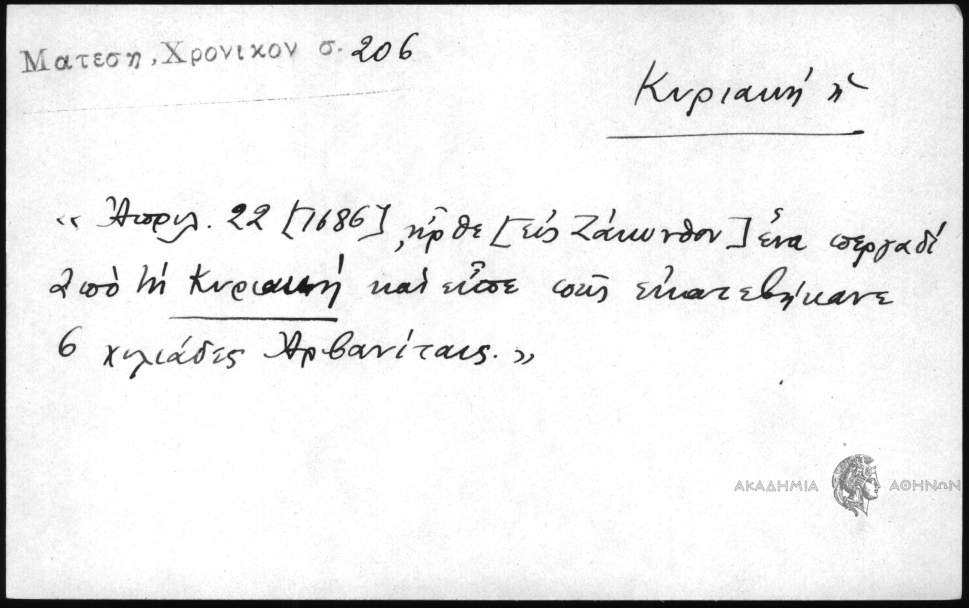 Ματεση, Χρονικον σ. 206
Κυριακή ἡ
« Ἀπριλ. 22 [1686], ἦρθε [εἰς Ζάκυνθον] ἕνα περγαδί
ἀπὸ τὴ Κυριακή καὶ εἶπε πῶς ἐκατεβήκανε
6 χιλιάδες Ἀρβανίταις. »
ΑΚΑΔΗΜΙΑ ΑΘΗΝΩΝ